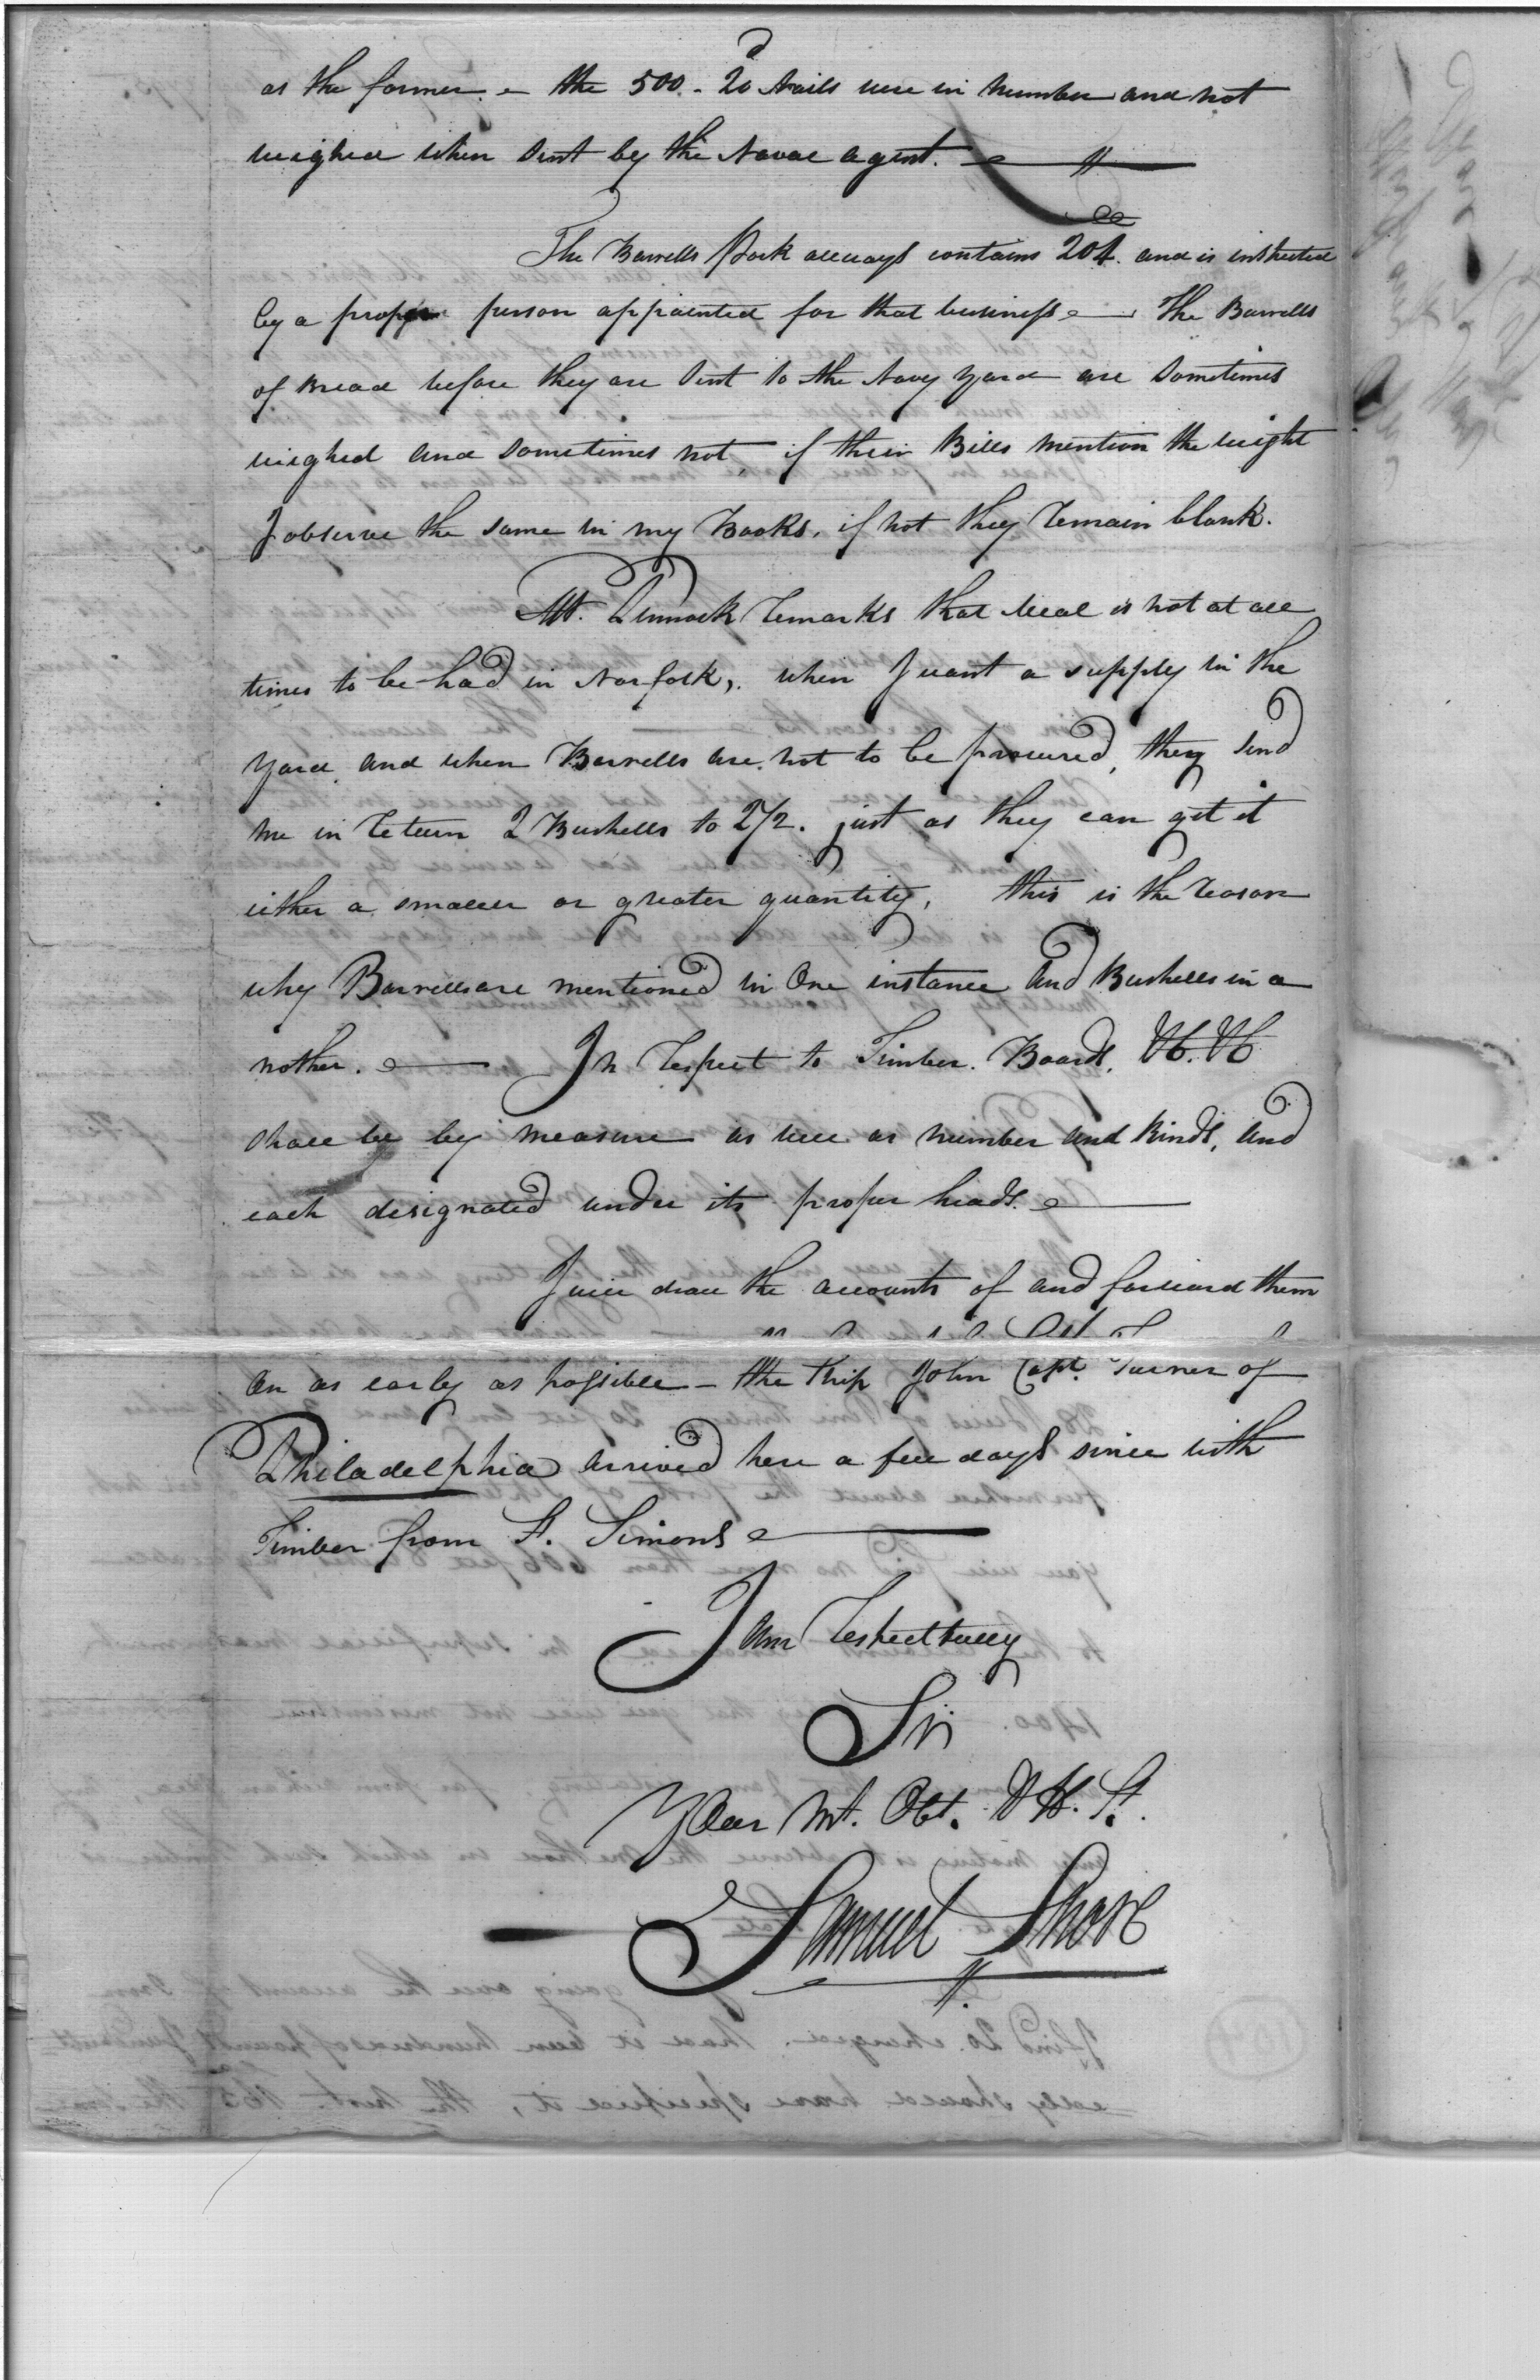 as the former. – the 500. 20d Nails were in number and not
weighed when sent by the Naval agent.
The Barrells Pork allways contains 204. and is inspected
by a proper person appointed for that business – The Barrells
of Bread before they are sent to the Navy Yard are sometimes
weighed and sometimes not, if their Bills mention the weight
I observe the same in my Books, if not they remain blank.
Mr. Pennock remarks that Meal is not at all
times to be had in Norfolk, when I want a supply in the
Yard, and when Barrells are not to be procured, they send
me in return 2 Bushells to 2½. just as they can get it
either a smaller or greater quantity, this is the reason
why Barrells are mentioned in One instance and Bushells in a
nother. – In respect to Timber. Boards, &c. &c
shall be by measure as well as number and kinds, and
each designated under its proper heads. –
I will draw the accounts of and forward them
on as early as possible – the Ship John Capt. Turner of
Philadelphia arrived here a few days since with
Timber from St. Simons –
I am respectfully
Sir
Your Mt. Obt. H. St.
Samuel Shore